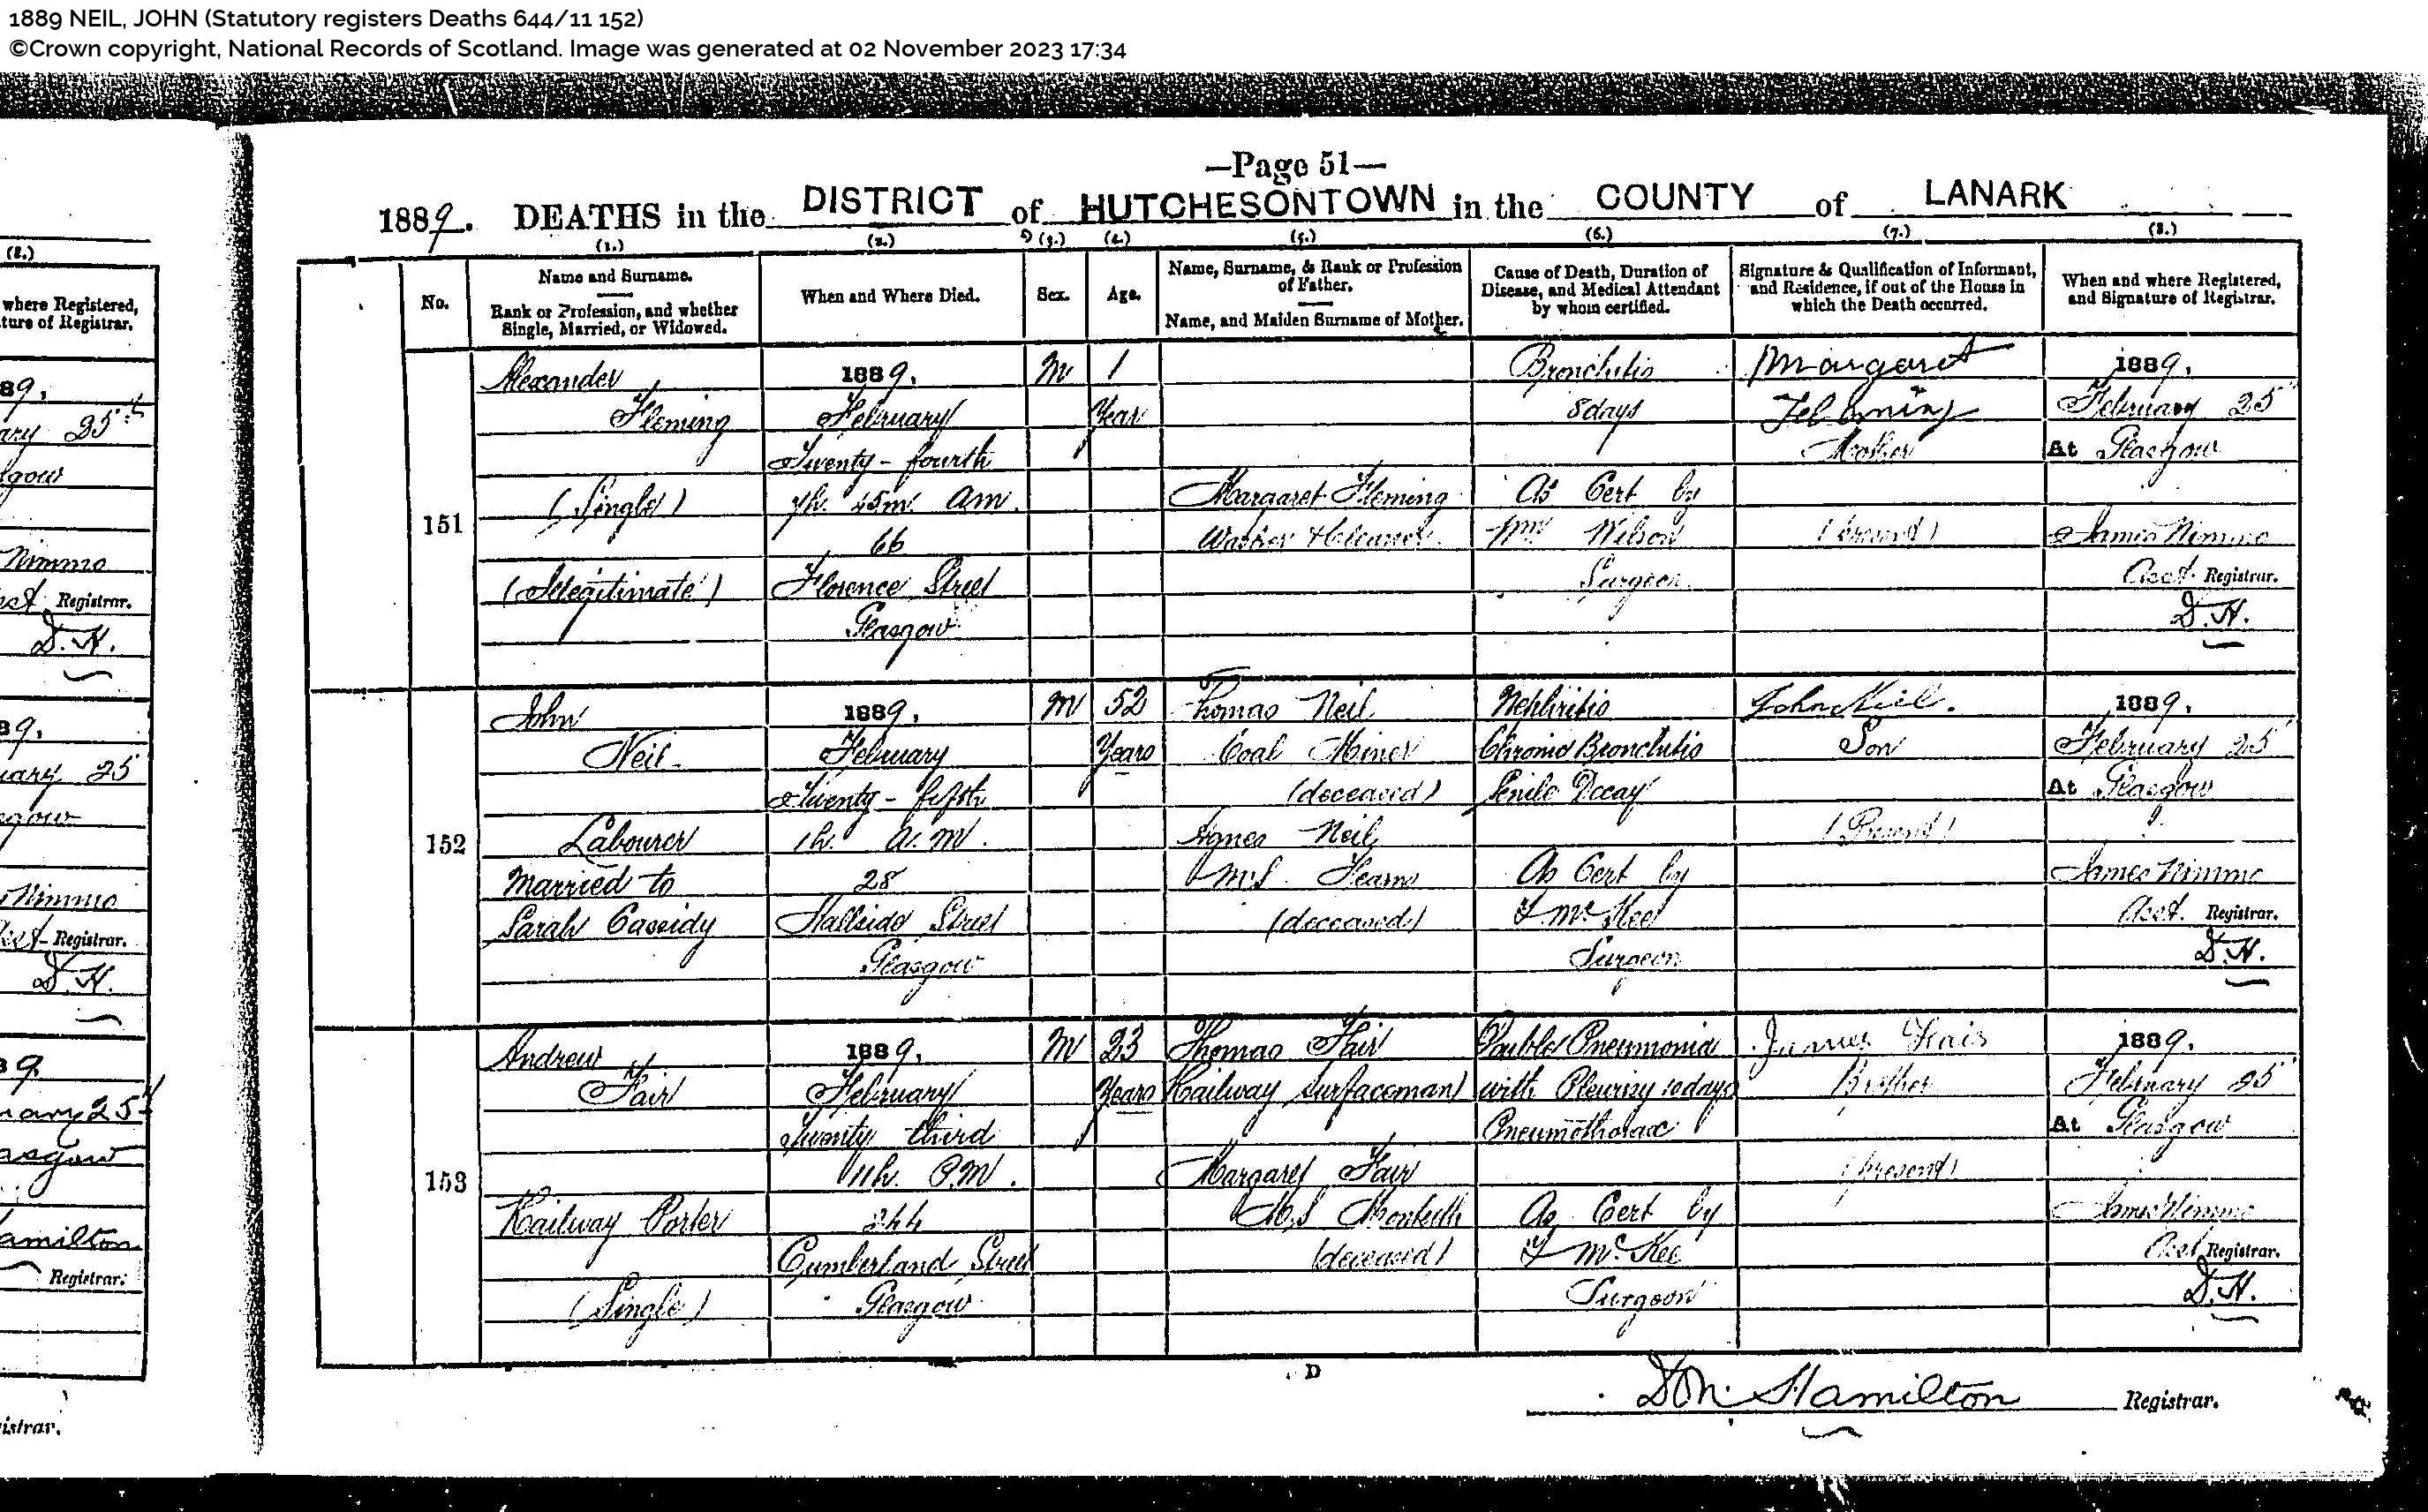 1889 NEIL, JOHN (Statutory registers Deaths 644/11 152)
©Crown copyright, National Records of Scotland. Image was generated at 02 November 2023 17:34
—Page 51—
1889. DEATHS in the DISTRICT of HUTCHESONTOWN in the COUNTY of LANARK
(1.) (2.) (3.) (4.) (5.) (6.) (7.) (8.)
No.
Name and Surname.
Rank or Profession, and whether
Single, Married, or Widowed.
When and Where Died.
Sex.
Age.
Name, Surname, & Rank or Profession
of Father.
Name, and Maiden Surname of Mother.
Cause of Death, Duration of
Disease, and Medical Attendant
by whom certified.
Signature & Qualification of Informant,
and Residence, if out of the House in
which the Death occurred.
When and where Registered,
and Signature of Registrar.
151
Alexander
Fleming
(Single)
(Illegitimate)
1889,
February
Twenty-fourth
7h. 45m. am.
66
Florence Street
Glasgow
M
1
Year
Margaret Fleming
Washer & Cleaner
Bronchitis
8 days
As Cert by
Wilson
Surgeon
Margaret
Mother
(Present)
1889,
February 25
At Glasgow
James Nimmo
Asst. Registrar.
D.H.
152
John
Neil
Labourer
Married to
Sarah Cassidy
1889,
February
Twenty-fifth
1h. a.m.
28
Hallside Street
Glasgow
M
52
Years
Thomas Neil
Coal Miner
(deceased)
Agnes Neil
M.S.
(deceased)
Nephritis
Chronic Bronchitis
Senile Decay
As Cert by
McKee
Surgeon
John Neil.
Son
(Present)
1889,
February 25
At Glasgow
James Nimmo
Asst. Registrar.
D.H.
153
Andrew
Fair
Railway Porter
(Single)
1889,
February
Twenty third
11h. P.M.
244
Cumberland Street
Glasgow
M
23
Years
Thomas Fair
Railway Surfaceman
Margaret Fair
M.S. Monteith
(deceased)
Double Pneumonia
with Pleurisy 10 days
Pneumothorax
As Cert by
McKee
Surgeon
James Fair
Brother
(Present)
1889,
February 25
At Glasgow
James Nimmo
Asst Registrar.
D.H.
D
Hamilton Registrar.